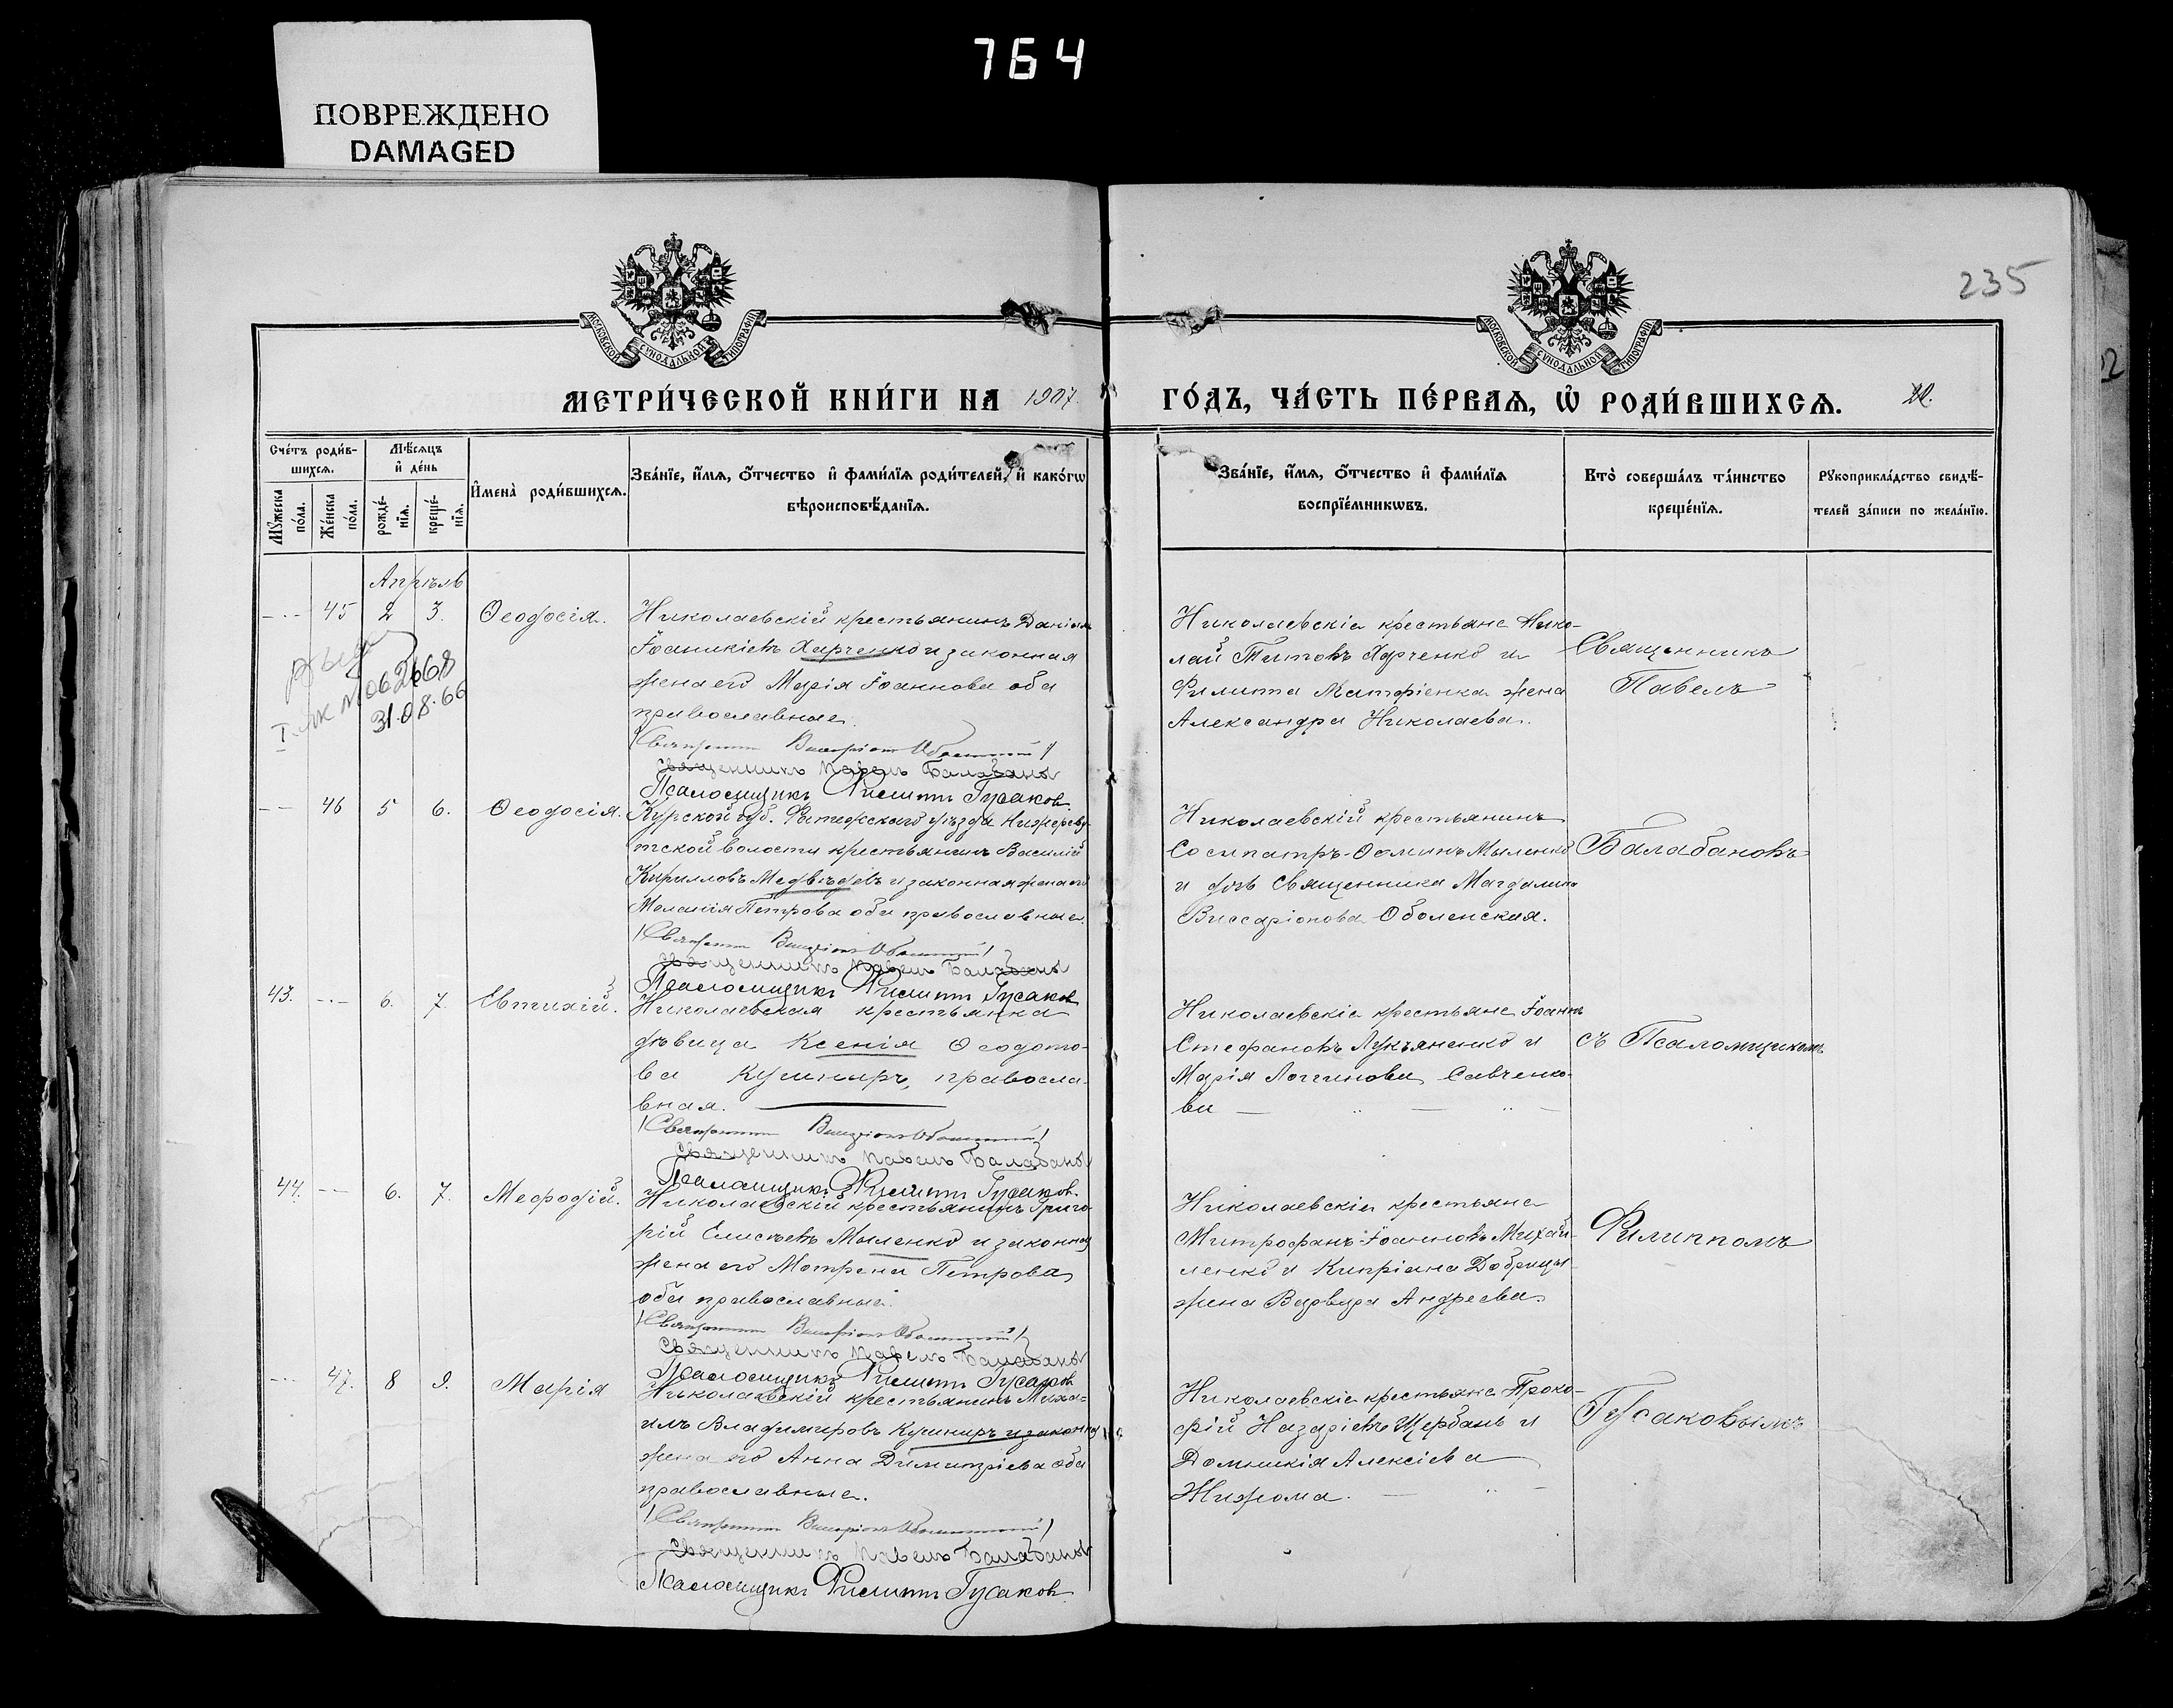 764
ПОВРЕЖДЕНО
DAMAGED
235
МОСКОВСКОЙ СѴНОДАЛЬНОЙ ТИПОГРАФІИ
МОСКОВСКОЙ СѴНОДАЛЬНОЙ ТИПОГРАФІИ
МЕТРИ́ЧЕСКОЙ КНИ́ГИ НА 1907.
ГО́ДЪ, ЧА́СТЬ ПЕ́РВАѦ, Ѡ҆ РОДИ́ВШИХСѦ.
Сче́тъ роди́в-
шихсѧ.
Мꙋ́жеска по́ла.
Же́нска по́ла.
Мѣ́сѧцъ
и҆ де́нь
рожде́-
нїѧ.
креще́-
нїѧ.
И҆мена̀ роди́вшихсѧ.
Зва́нїе, и҆́мѧ, ѻ҆́тчество и҆ фами́лїѧ роди́телей, и҆ како́гѡ
вѣроисповѣ́данїѧ.
Зва́нїе, и҆́мѧ, ѻ҆́тчество и҆ фами́лїѧ
воспрїе́мникѡвъ.
Кто̀ соверша́лъ та́инство
креще́нїѧ.
Рꙋкоприкла́дство свидѣ́-
телей за́писи по жела́нїю.
Апрѣль
45 2 3. Ѳеодосія.
Николаевскій крестьянинъ Даніилъ
Іоанникіевъ Харченко и законная
жена его Марія Іоаннова оба
православные.
Священникъ Виссаріонъ Оболенскій
Священникъ Павелъ Балабановъ
Псаломщикъ Филиппъ Гусаковъ.
Николаевскіе крестьяне Нико-
лай Титовъ Харченко и
Филиппа Матфіенка жена
Александра Николаева.
Священникъ
Павелъ
№ 062668
31.08.66
46 5 6. Ѳеодосія.
Курской губ. Фатежскаго уѣзда Нижнереу-
тской волости крестьянинъ Василій
Кирилловъ Медвѣдевъ и законная жена его
Меланія Петрова оба православные.
Священникъ Виссаріонъ Оболенскій
Священникъ Павелъ Балабановъ
Псаломщикъ Филиппъ Гусаковъ
Николаевскій крестьянинъ
Сосипатръ Ѳоминъ Мыленко
и дочь Священника Магдалина
Виссаріонова Оболенская.
Балабановъ
43. 6. 7. Евтихій.
Николаевская крестьянка
дѣвица Ксенія Ѳеодото-
ва Кушниръ, правосла-
вная.
Священникъ Виссаріонъ Оболенскій
Священникъ Павелъ Балабановъ
Псаломщикъ Филиппъ Гусаковъ.
Николаевскіе крестьяне Іоаннъ
Стефановъ Лукьяненко и
Марія Логгинова Савченко-
ва
съ Псаломщикомъ
44. 6. 7. Меѳодій.
Николаевскій крестьянинъ Григо-
рій Елисѣевъ Мыленко и законная
жена его Матрена Петрова
оба православные.
Священникъ Виссаріонъ Оболенскій
Священникъ Павелъ Балабановъ
Псаломщикъ Филиппъ Гусаковъ
Николаевскіе крестьяне
Митрофанъ Іоанновъ Михай-
ленко и Кипріана Добрицы
жена Варвара Андреева.
Филиппомъ
47. 8 9. Марія
Николаевскій крестьянинъ Миха-
илъ Владиміровъ Кушниръ и законная
жена его Анна Димитріева оба
православные.
Священникъ Виссаріонъ Оболенскій
Священникъ Павелъ Балабановъ
Псаломщикъ Филиппъ Гусаковъ.
Николаевскіе крестьяне Проко-
фій Назаріевъ Щербань и
Домникія Алексіева
Жижома.
Гусаковымъ